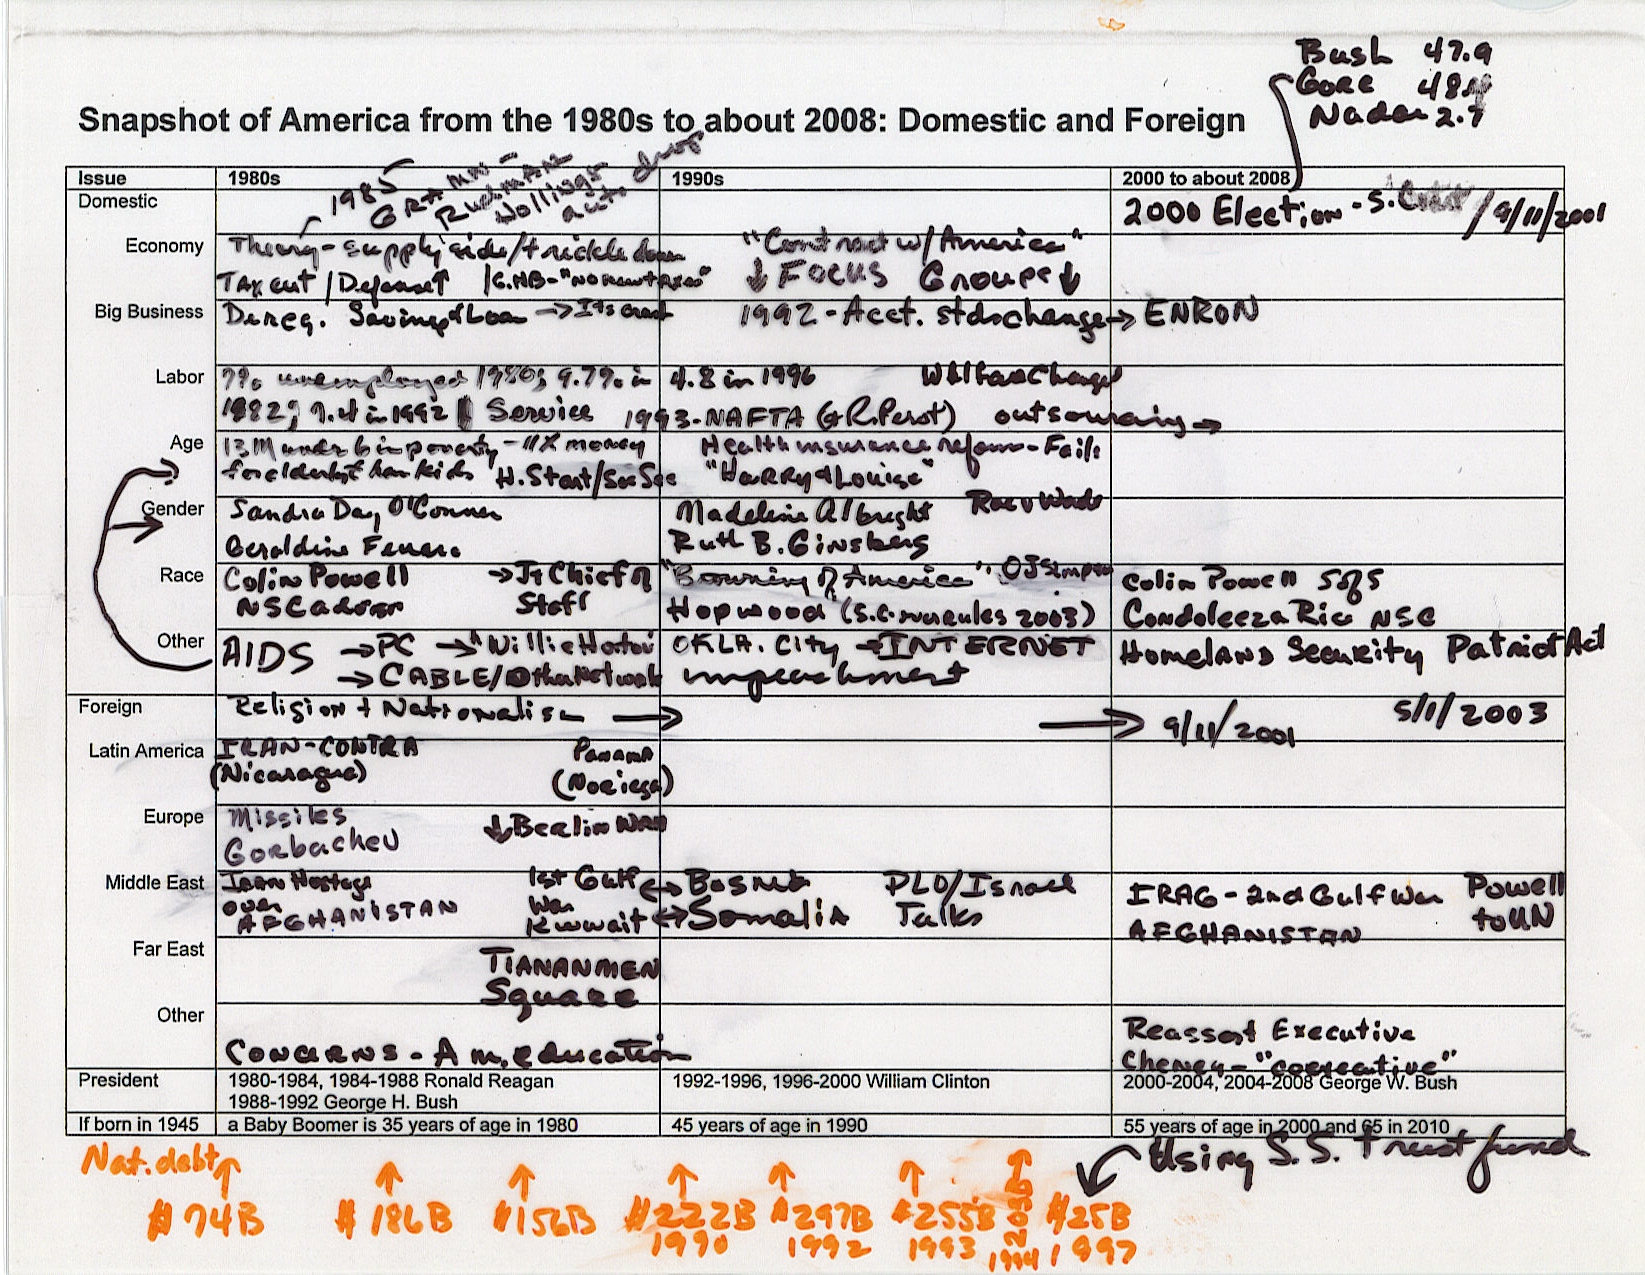 Bush 47.9
Gore 48.4
Nader 2.7
Snapshot of America from the 1980s to about 2008: Domestic and Foreign
1985
GRAMM-
RudmAN
Hollings
auto. drop
Issue 1980s 1990s 2000 to about 2008
Domestic 2000 Election - S. Court / 9/11/2001
Economy Theory - supply side/trickle down "Contract w/ America"
TAX cut / Defense↑ /G.HB-"NO new taxes" ↓ FOCUS Groups ↓
Big Business Dereg. Savings & Loan → Its crash 1992 - Acct. stds change → ENRON
Labor 7% unemployed 1980; 9.7% in 4.8 in 1996 Welfare Change
1982; 7.4 in 1992 Service 1993-NAFTA (& R. Perot) outsourcing →
Age 13M under 6 in poverty - 11X money Health insurance reform - Fails
for elderly than kids H. Start/Soc Sec "Harry & Louise"
Gender Sandra Day O'Conner Madeline Albright Roe v Wade
Geraldine Ferraro Ruth B. Ginsberg
Race Colin Powell → Jt Chief of "Browning of America" OJ Simpson Colin Powell S of S
NSC advisor Staff Hopwood (S.C. overrules 2003) Condoleeza Rice NSC
Other AIDS → PC → "Willie Horton" OKLA. City → INTERNET Homeland Security Patriot Act
→ CABLE/Other Network impeachment
Foreign Religion + Nationalism → → 9/11/2001 5/1/2003
Latin America IRAN-CONTRA Panama
(Nicaragua) (Noriega)
Europe Missiles ↓ Berlin Wall
Gorbachev
Middle East Iran Hostage 1st Gulf ↔ Bosnia PLO/Israel IRAQ - 2nd Gulf War Powell
over War Kuwait ↔ Somalia Talks to UN
AFGHANISTAN AFGHANISTAN
Far East TIANANMEN
Square
Other Reassert Executive
Concerns - Am. education Cheney - "coexecutive"
President 1980-1984, 1984-1988 Ronald Reagan 1992-1996, 1996-2000 William Clinton 2000-2004, 2004-2008 George W. Bush
1988-1992 George H. Bush
If born in 1945 a Baby Boomer is 35 years of age in 1980 45 years of age in 1990 55 years of age in 2000 and 65 in 2010
Nat. debt ↑ Using S.S. Trust fund
$74B $186B $156B $222B $297B $255B $203 $25B
1990 1992 1993 1994 1997